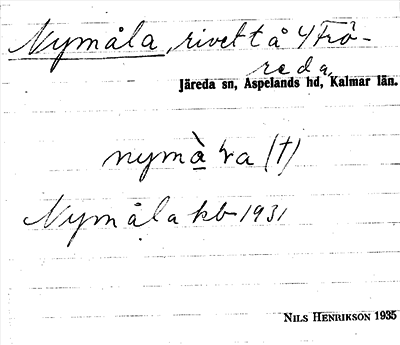 Nymåla, rivet t å 4 Frö-
reda,
Järeda sn, Aspelands hd, Kalmar län.
(†)
Nymåla kb 1931
NILS HENRIKSON 1935